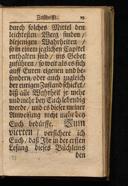 Zuschrifft. 19
durch solches Mittel den
leichtesten Weeg finden /
diejenigen Wahrheiten / so
in einem jeglichen Capitel
enthalten sind / ins Gebet
zuführen / so weit als es sich
auff Euren eigenen und be-
sondern / oder auch zugleich
der einigen Zustand schicket /
biß alle Wahrheit je mehr
und mehr bey Euch lebendig
werde / und es dieser meiner
Anweisung nicht mehr bey
Euch bedürffe. Zum
vierten / versichere ich
Euch / daß Ihr in der ersten
Lesung dieses Büchleins
den